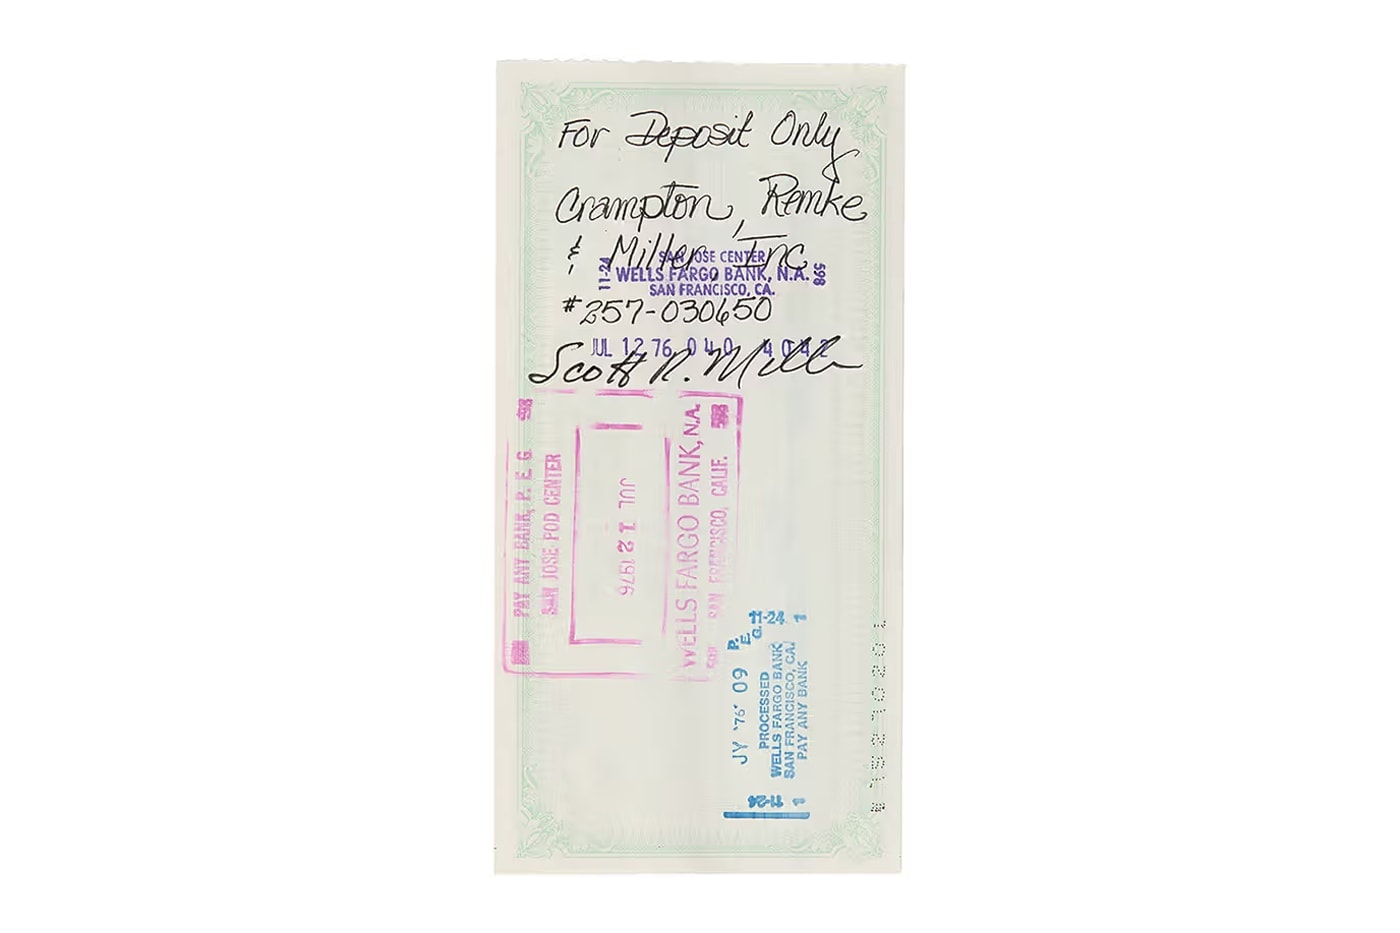 For Deposit Only
Crampton, Remke
& Miller, Inc
SAN JOSE CENTER
11-24 WELLS FARGO BANK, N.A. 598
SAN FRANCISCO, CA.
#257-030650
JUL 12 76 040 4042
Scott R. Miller
PAY ANY BANK, P. E. G
SAN JOSE POD CENTER
JUL 12 1976
WELLS FARGO BANK, N.A.
SAN FRANCISCO, CALIF.
JY '76 09 P. E. G. 11-24 1
PROCESSED
WELLS FARGO BANK
SAN FRANCISCO, CA.
PAY ANY BANK
11-24 1